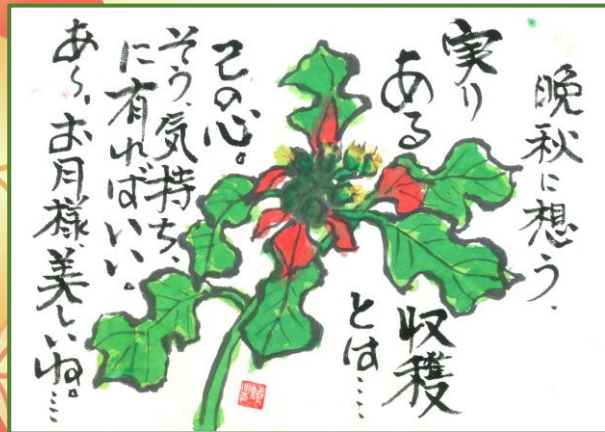 晩秋に想う、
実り
ある
収穫
とは……
己の心。
そう、気持ち、
に有ればいい。
あ〜、お月様、美しいね。…